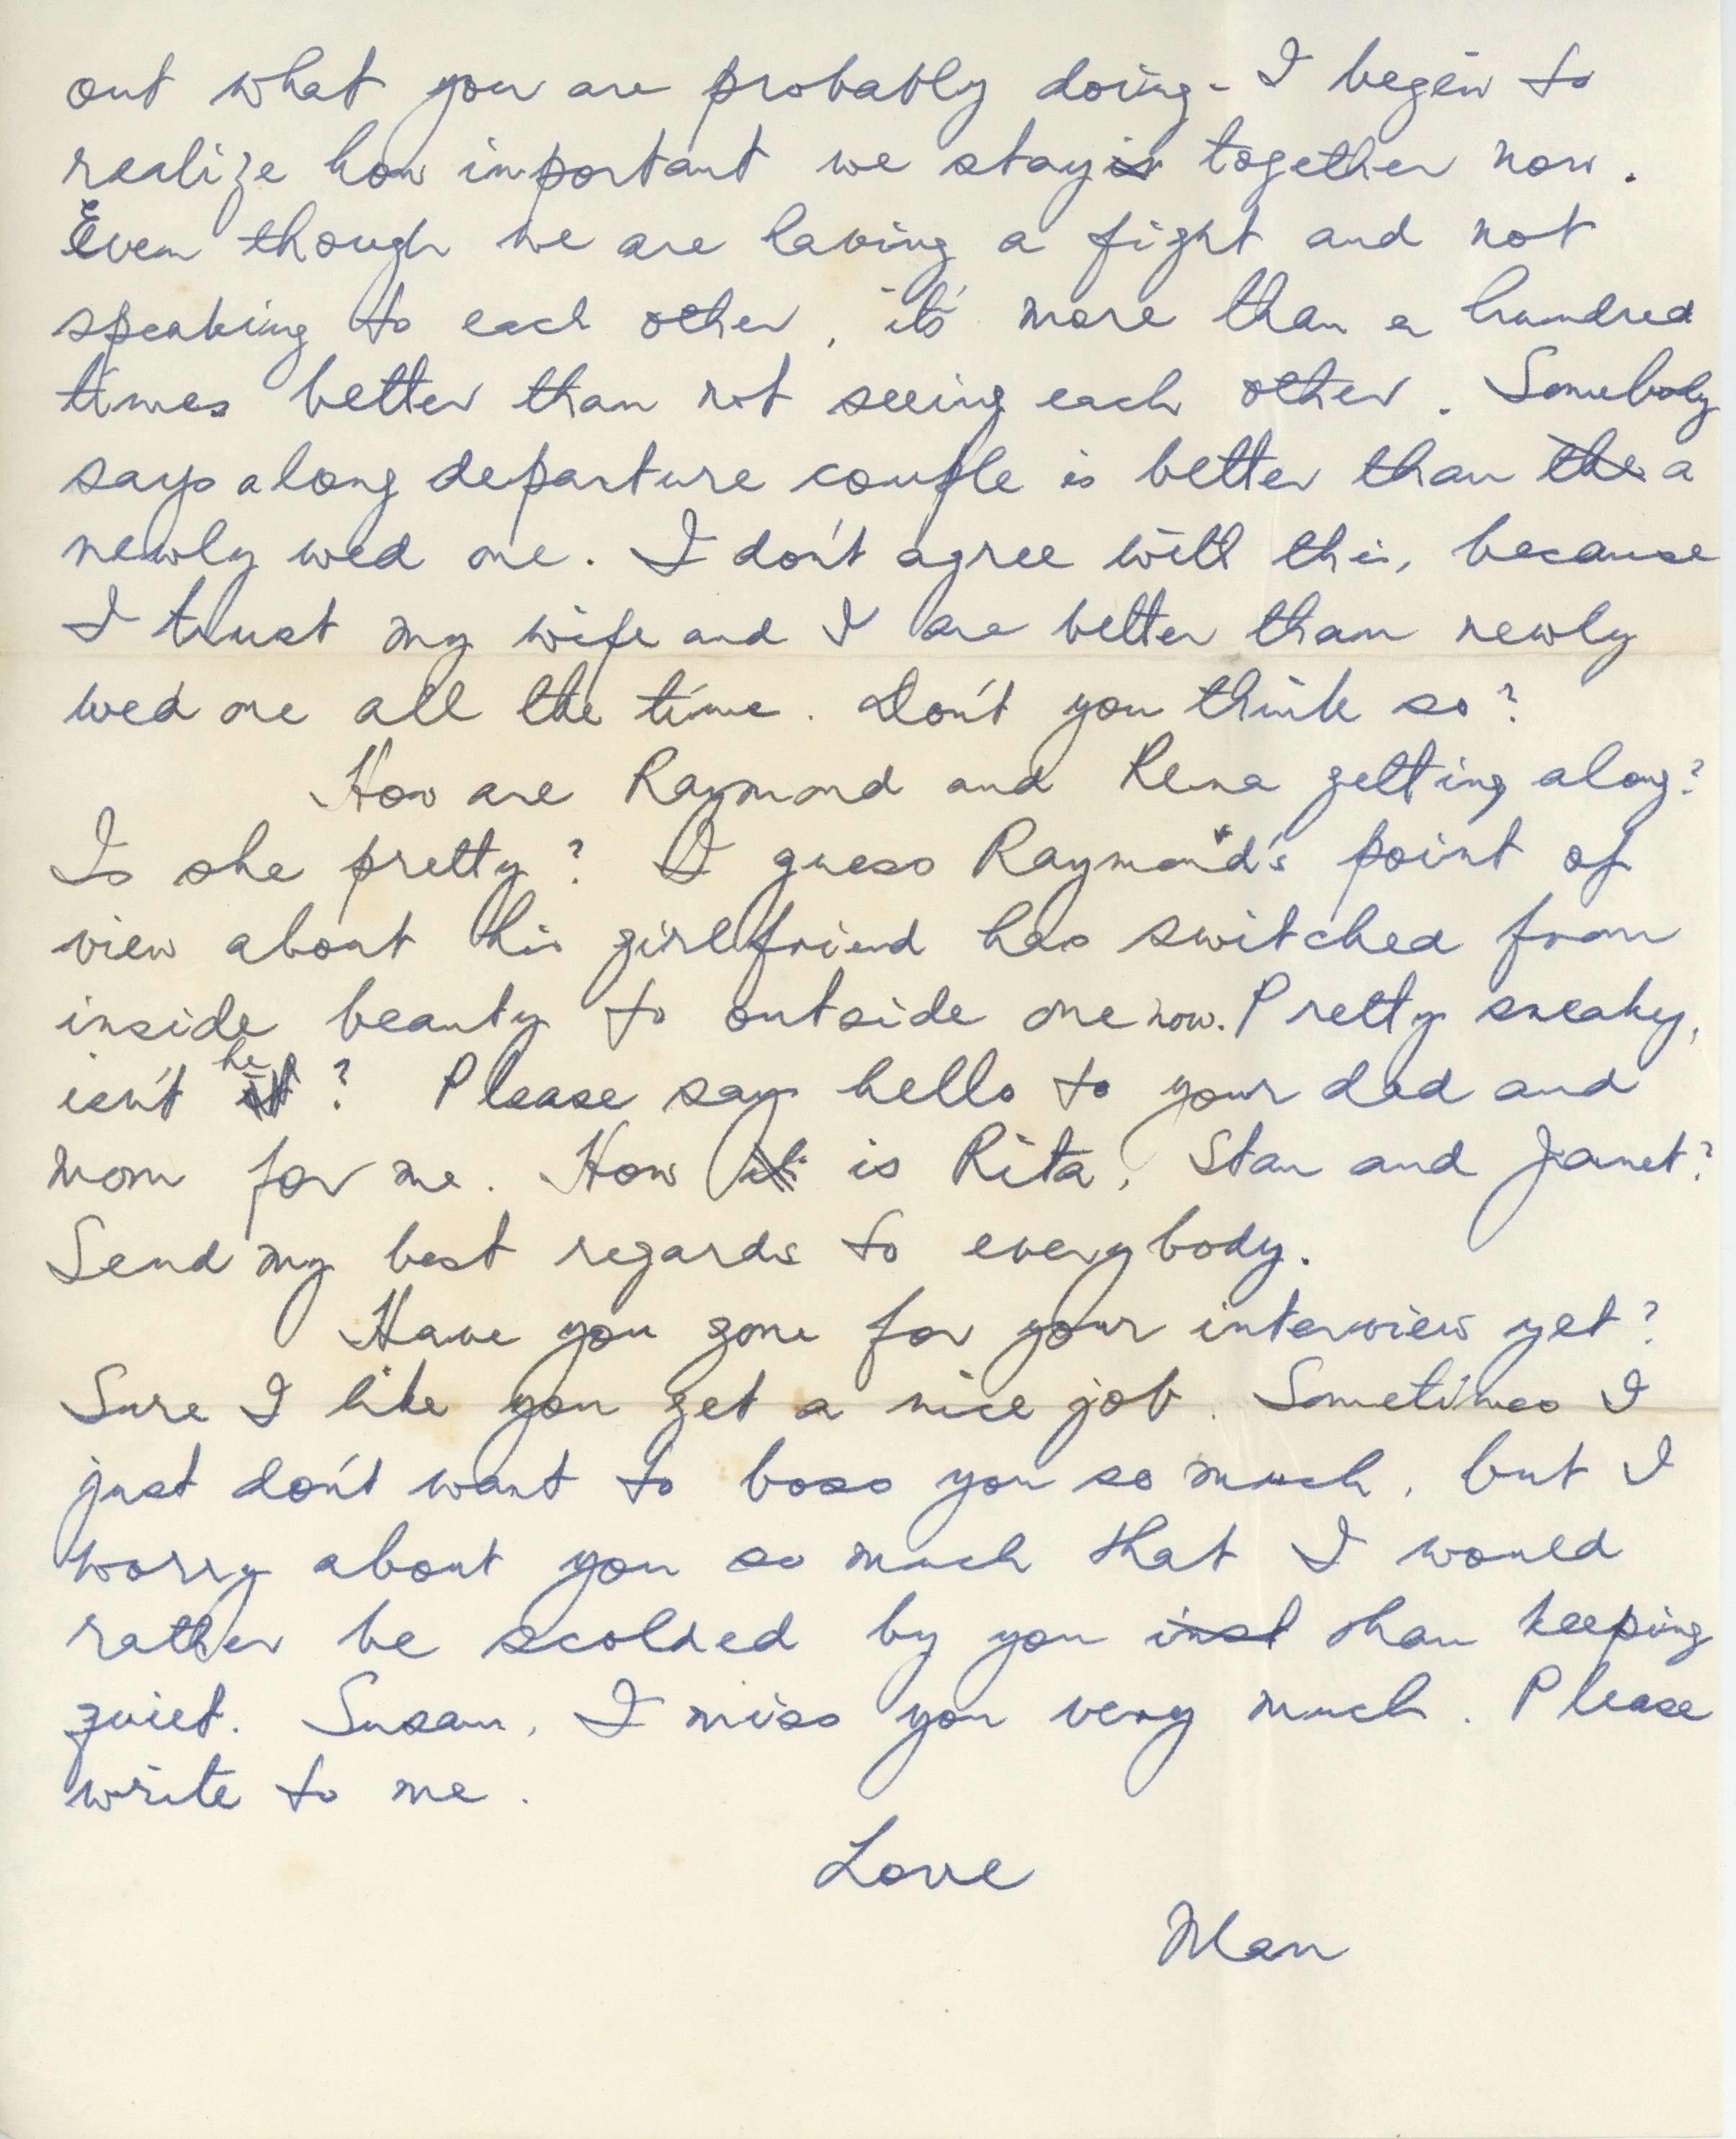 out what you are probably doing - I begin to
realize how important we stay is together now.
Even though we are having a fight and not
speaking to each other, it's more than a hundred
times better than not seeing each other. Somebody
says a long departure couple is better than the a
newly wed one. I don't agree will this, because
I trust my wife and I are better than newly
wed one all the time. Don't you think so?
How are Raymond and Rena getting along?
Is she pretty? I guess Raymond's point of
view about his girlfriend has switched from
inside beauty to outside one now. Pretty sneaky,
isn't it he? Please say hello to your dad and
mom for me. How is Rita, Stan and Janet?
Send my best regards to everybody.
Have you gone for your interview yet?
Sure I like you get a nice job. Sometimes I
just don't want to boss you so much, but I
worry about you so much that I would
rather be scolded by you inst than keeping
quiet. Susan, I miss you very much. Please
write to me.
Love
Man